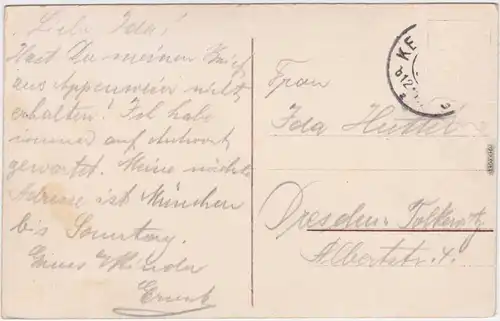 Liebe Ida!
Hast Du meinen Brief
aus Appenweier nicht
erhalten! Ich habe
immer auf Antwort
gewartet. Meine nächste
Adresse ist München
bis Sonntag.
Gruss
Ernst
KE
Frau
Ida Hüttel
Dresden-Tolkewitz
Albertstr. 4.